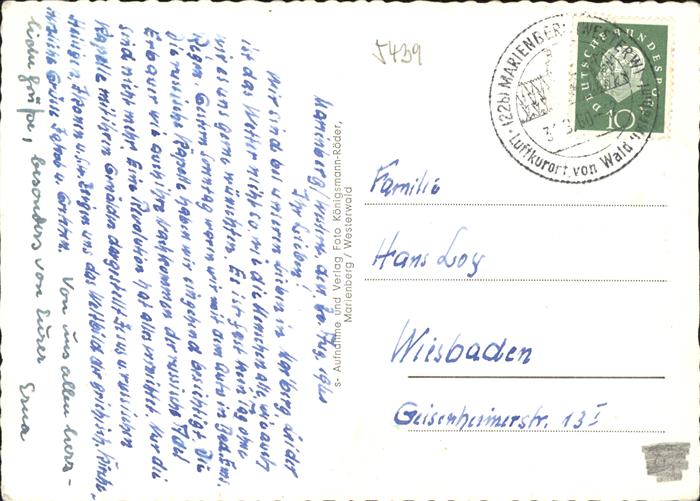 5439
Marienberg/Westerw. den
Ihr Lieben!
Wir sind bei unseren Lieben in Marbg. leider
ist das Wetter nicht so, wie die Menschen alle, wie auch
wir es uns gerne wünschten. Es ist fast kein Tag ohne
Regen. Gestern Sonntag waren wir mit dem Auto in Bad Ems.
Die russische Kapelle haben wir eingehend besichtigt. Die
Erbauer wie auch ihre Nachkommen der russische Adel
sind nicht mehr. Eine Revolution hat alles vernichtet. Nur die
Kapelle mit ihren Gemälden dargestellt Jesus u. russischen
Heiligen, Ikonen u.s.w. zeigen uns das Weltbild der griechisch. Kirche.
Herzliche Grüße
Von uns allen herz-
liche Grüße, besonders von Eurer Erna
s- Aufnahme und Verlag Foto Königsmann-Röder,
Marienberg / Westerwald
(22b) MARIENBERG (WESTERW)
Luftkurort von Wald
DEUTSCHE BUNDESPOST
10
Familie
Hans Loy
Wiesbaden
Geisenheimerstr. 13 I